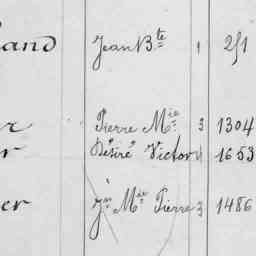 and Jean Bte 1 251
r Pierre Mie 3 1304
r Désiré Victor 4 1653
er Jn Mie Pierre 3 1486